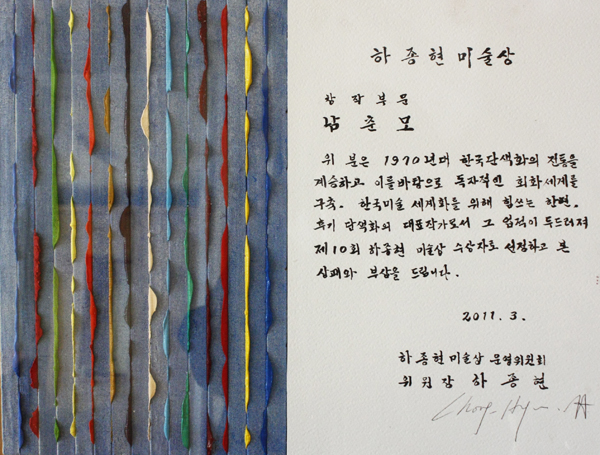 하종현미술상
창작부문
남준모
위 분은 1970년대 한국단색화의 전통을
계승하고 이를바탕으로 독자적인 회화세계를
구축. 한국미술 세계화를 위해 힘쓰는 한편.
후기 단색화의 대표작가로서 그 업적이 두드러져
제10회 하종현 미술상 수상자로 선정하고 본
상패와 부상을 드립니다.
2011. 3.
하종현미술상 운영위원회
위원장 하종현
Chong-Hyun. HA